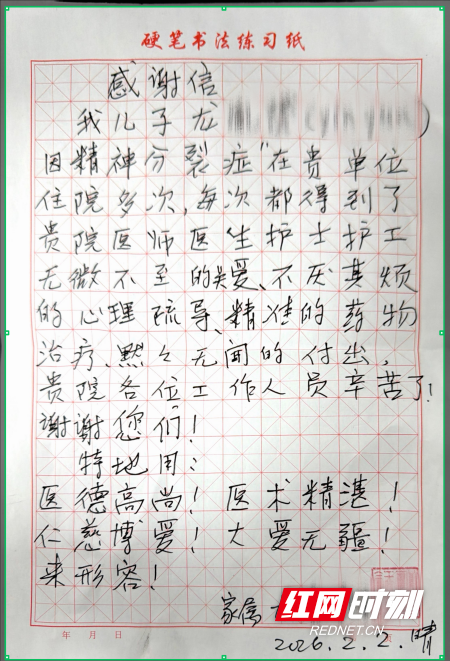 硬笔书法练习纸
感谢信
我儿子龙
因"精神分裂症"在贵单位
住院多次,每次都得到了
贵院医师医生护士护工
无微不至的关爱、不厌其烦
的心理疏导、精准的药物
治疗、默々无闻的付出,
贵院各位工作人员辛苦了!
谢谢您们!
特地用:
医德高尚!医术精湛!
仁慈博爱!大爱无疆!
来形容!
家属
2026.2.2.晴
年 月 日
红网时刻
REDNET.CN